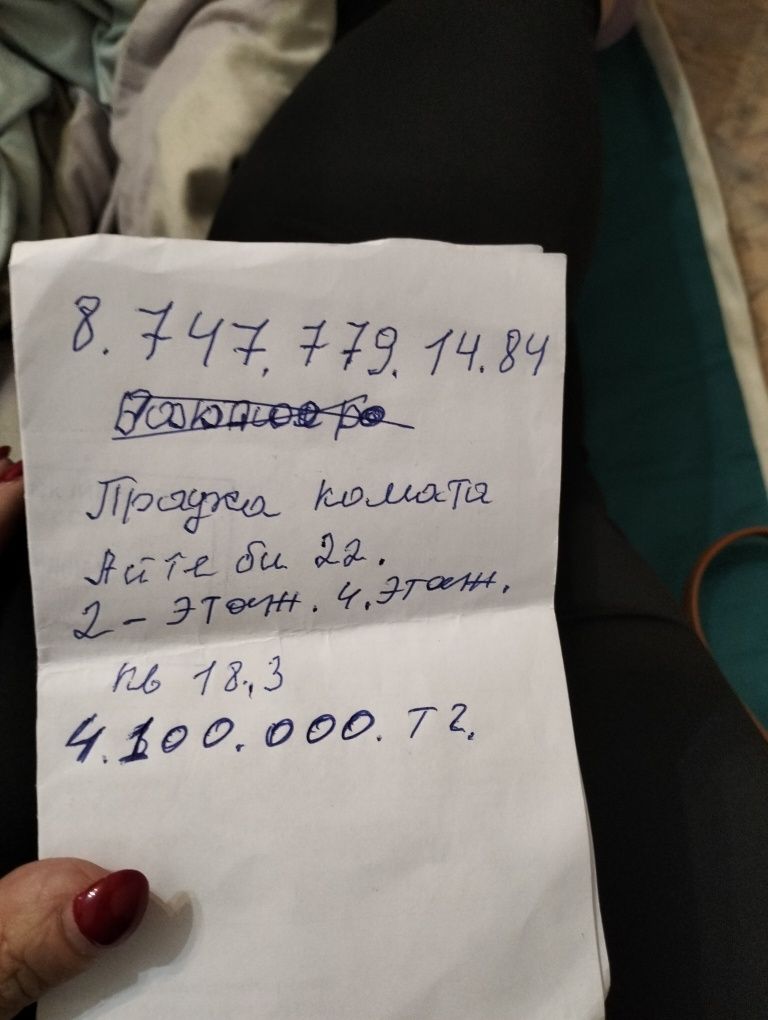 8.747.779.14.84
Проджа комата
Айте би 22.
2 - этаж. 4. этаж.
кв 18,3
4.100.000. тг.